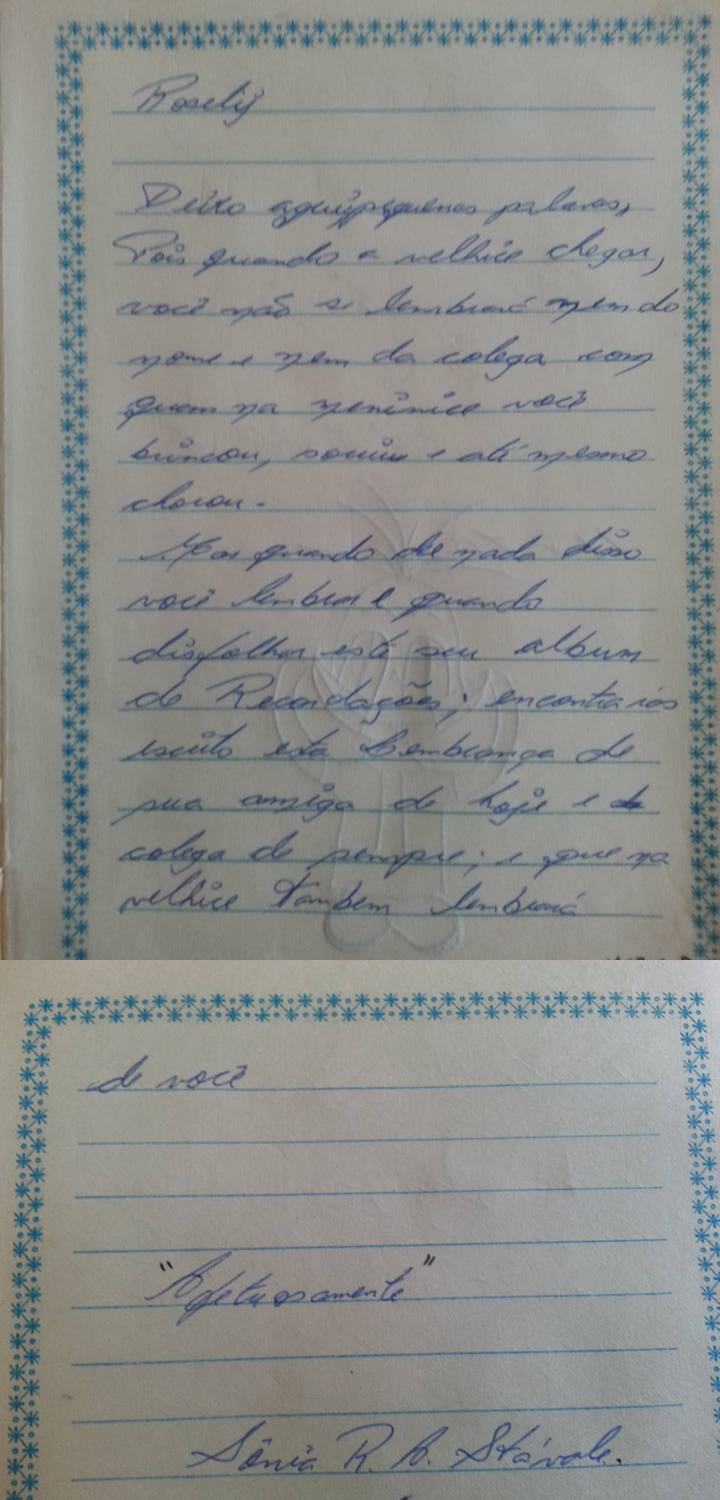 Rosely
Deixo aqui pequenas palavras,
Pois quando a velhice chegar,
você não se lembrará nem do
nome e nem da colega com
quem na meninice você
brincou, sorriu e até mesmo
chorou.
Mas quando de nada disso
você lembrar e quando
disfolhar este seu album
de Recordações; encontrarás
escrito esta Lembrança de
sua amiga de hoje e de
colega de sempre; e que na
velhice tambem lembrará
de você
"Afetuosamente"
Sônia R. A. Stávale.